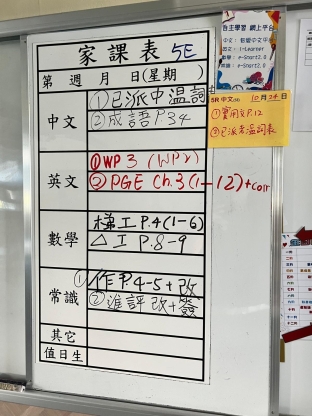 家課表 5E
第 週 月 日(星期 )
中文
①已派中溫詞
②成語P.34
英文
①WP 3 (WP2)
②PGE Ch.3(1-12)+corr
數學
梯工P.4(1-6)
△工P.8-9
常識
①作P.4-5+改
②進評改+簽
其它
值日生
自主學習 網上平台
英文: I-Learner
數學: e-Smart2.0
常識: e-Smart2.0
5R 中文 10月24日
①實用文P.12